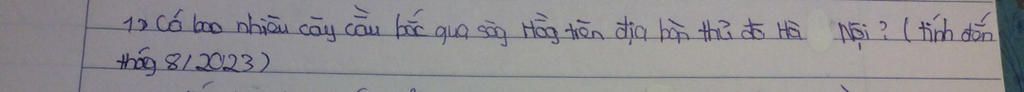 1) Có bao nhiêu cây cầu bắc qua sôg Hồg trên địa bàn thủ đô Hà Nội? (tính đến
thág 8/2023)